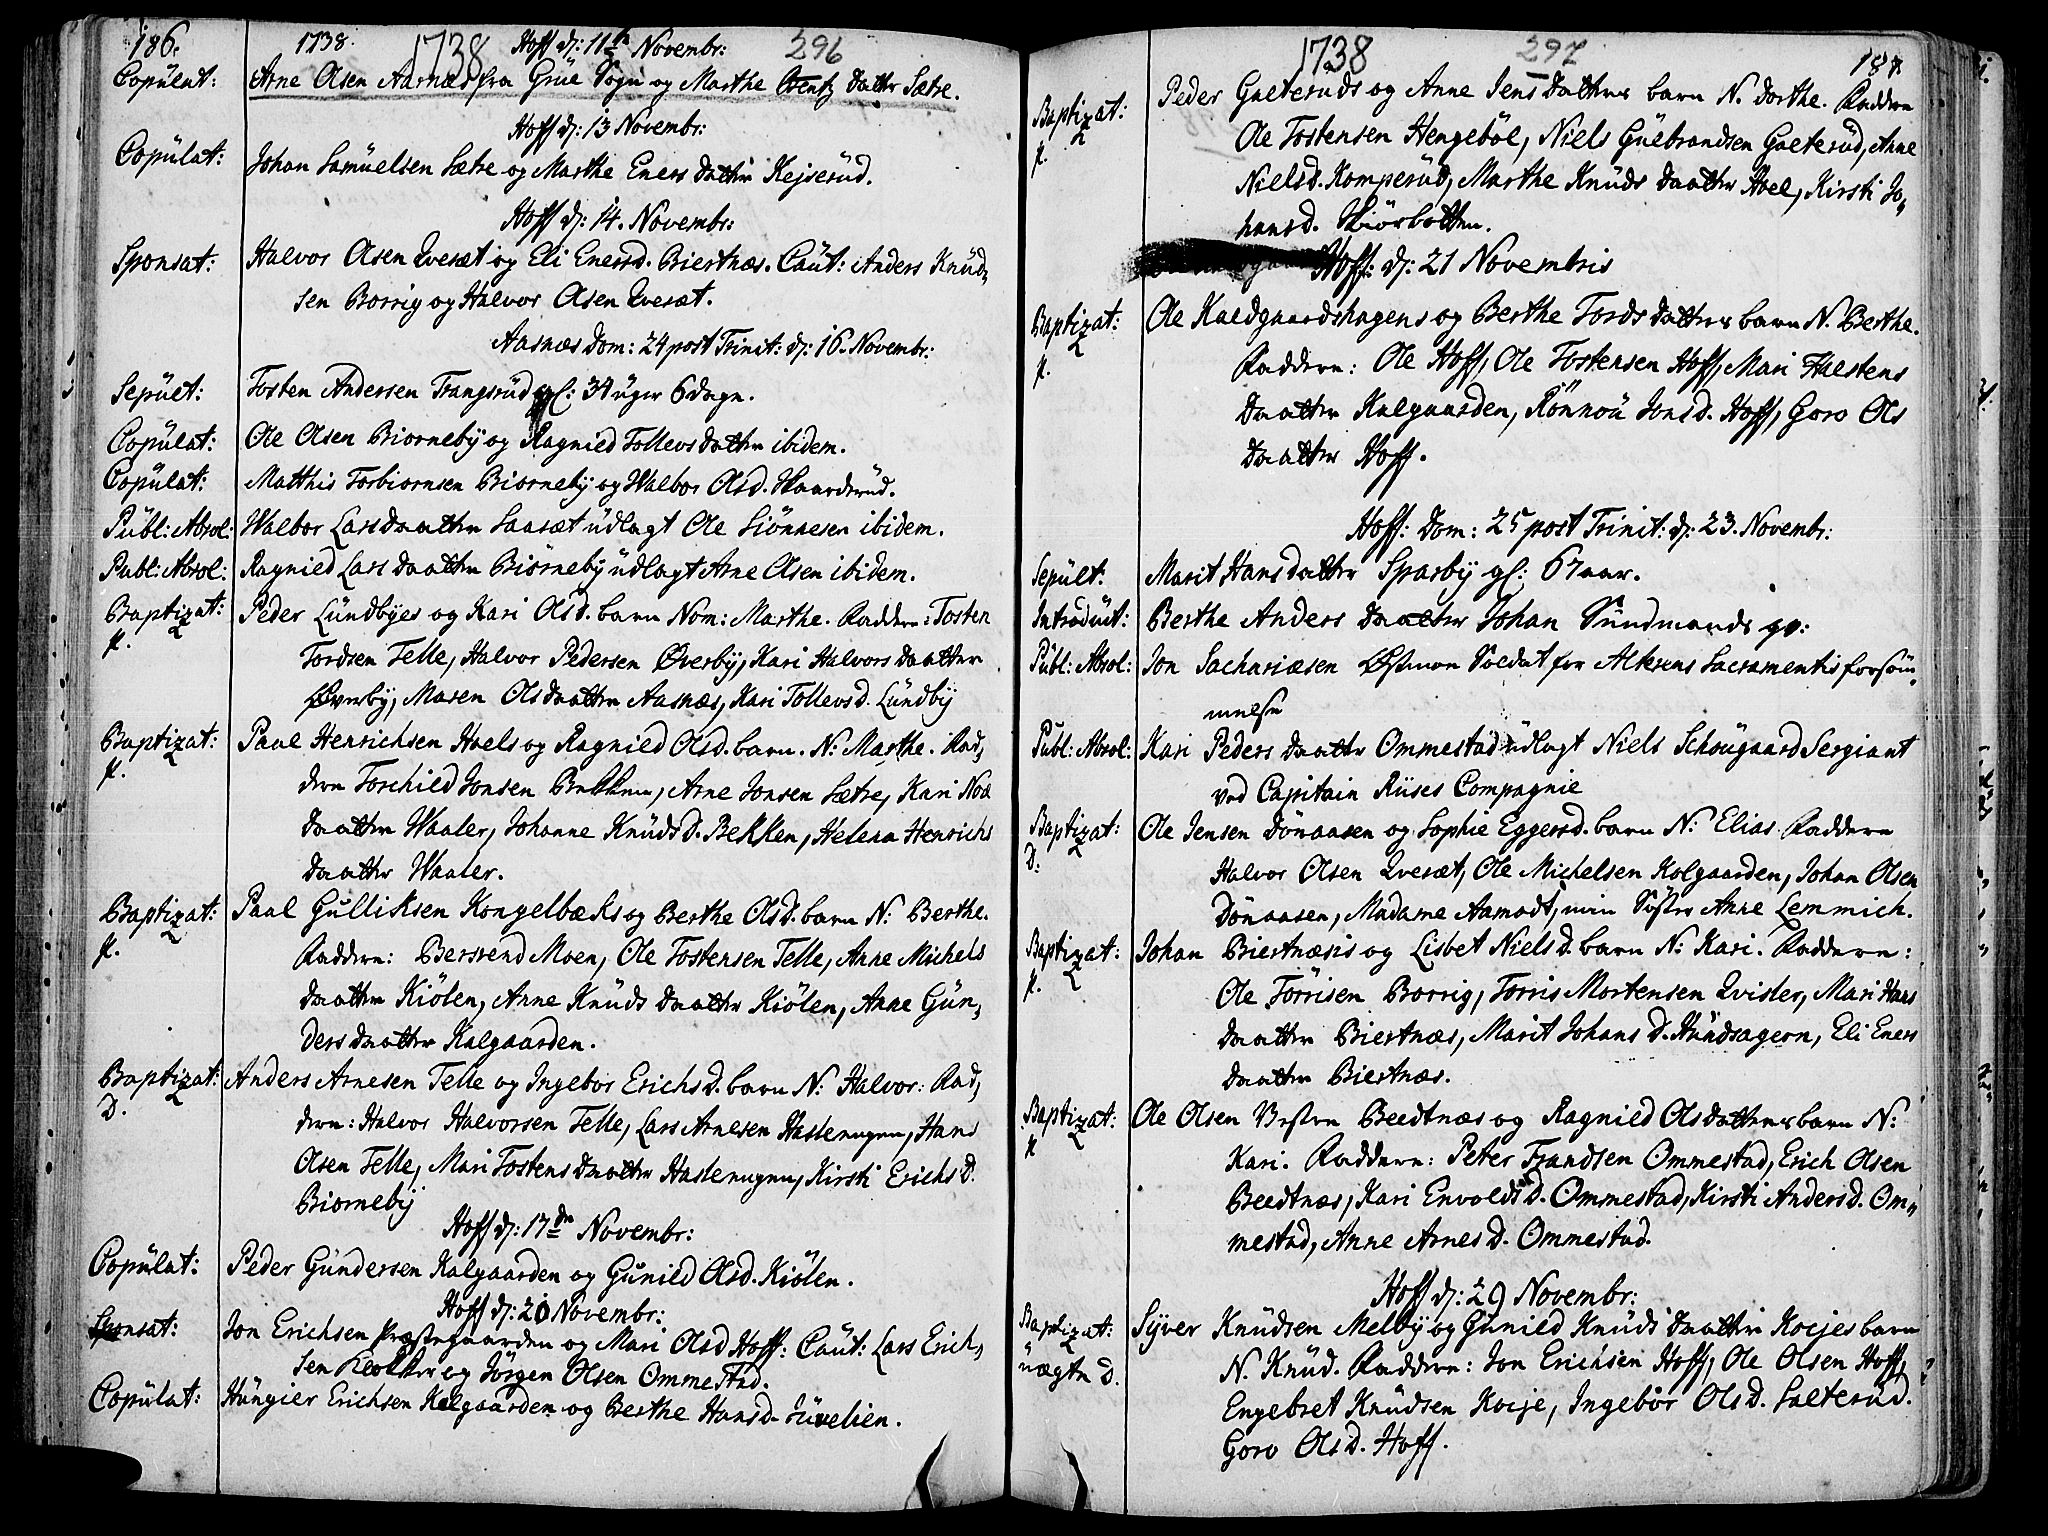 186. 1738. 1738 Hoff d: 11te Novembr: 296
Copulat: Arne Olsen Aarnæs fra Grue Sogn og Marthe Daatter Sætre.
Hoff d: 13 Novembr:
Copulat: Johan Samuelsen Sætre og Marthe Eners Datter Kejserud.
Hoff d: 14. Novembr:
Sponsat: Halvor Olsen Qvesæt og Eli Enersd. Biertnæs. Caut: Anders Knud-
sen Borrig og Halvor Olsen Qvesæt.
Aasnæs Dom: 24 post Trinit: d: 16. Novembr:
Sepult: Tosten Andersen Trangsrud gl: 34 uger 6 dage.
Copulat: Ole Olsen Biorneby og Ragnild Tollevs datter ibidem.
Copulat: Matthis Torbiornsen Biorneby og Walbor Olsd. Skaarderud.
Publ: Absol: Walbor Lars Daatter Saasæt udlagt Ole Siønnesen ibidem.
Publ: Absol: Ragnild Lars Daatter Biørneby udlagt Arne Olsen ibidem.
Baptizat: Peder Lundbyes og Kari Olsd. barn Nom: Marthe. Faddere: Tosten
p. Tordsen Telle, Halvor Pedersen Øverby, Kari Halvors Daatter
Øverby, Maren Olsdaatter Aasnæs, Kari Tollevsd. Lundby
Baptizat: Paul Henrichsen Hoels og Ragnild Olsd. barn. N: Marthe. Fad-
p. dere Torchild Jonsen Bekken, Arne Jonsen Sætre, Kari Noa
Daatter Waaler, Johanne Knuds D. Bekken, Helena Henrichs
Daatter Waaler.
Baptizat: Paal Gulliksen Kongelbæks og Berthe Olsd. barn N: Berthe.
p. Faddere: Bersvend Moen, Ole Tostensen Telle, Anne Michels
Daatter Kiølen, Anne Knuds Daatter Kiølen, Anne Gun-
ders Daatter Kalgaarden.
Baptizat: Anders Arnesen Telle og Ingebor Erichs D. barn N: Halvor: Fad-
D. dere: Halvor Halvorsen Telle, Lars Arnesen Haslerugen, Hans
Olsen Telle, Mari Tostens Daatter Haslerugen, Kirsti Erichs D.
Biorneby
Hoff d: 17de Novembr:
Copulat: Peder Gundersen Kalgaarden og Gunild Olsd. Kiölen.
Hoff d: 20 Novembr:
Sponsat: Jon Erichsen Præstegaarden og Mari Olsd Hoff: Caut: Lars Erich-
sen Klokker og Jörgen Olsen Ommestad.
Copulat: Hungier Erichsen Kalgaarden og Berthe Hansd. Juvelien.
1738 297 187
Baptizat: Peder Galteruds og Anne Jens Datters barn N. Dorthe. Faddere
p. Ole Tostensen Hengeböl, Niels Gulbrandsen Galterud, Anne
Nielsd. Kamperud, Marthe Knuds Daatter Hoel, Kirsti Jo-
hansd. Skiörbotten.
Hoff: d: 21 Novembris
Baptizat: Ole Kaldgaardshagens og Berthe Tords Datters barn N. Berthe.
p. Faddere: Ole Hoff, Ole Tostensen Hoff, Mari Halstens
Daatter Kalgaarden, Rönnou Jonsd. Hoff, Goro Ols
Daatter Hoff.
Hoff: Dom: 25 post Trinit: d: 23. Novembr:
Sepult: Marit Hans datter Sparby gl: 67 aar.
Introdut: Berthe Anders Daatter Johan Sundmands qv:
Publ: Absol: Jon Sachariæsen Østmoe Soldat for Alterens Sacramentis forsöm-
melse
Publ: Absol: Kari Peders Daatter Ommestad udlagt Niels Schougaard Sergiant
ved Capitain Riises Compagnie
Baptizat: Ole Jensen Dönaasen og Sophie Eggersd. barn N: Elias Faddere
D. Halvor Olsen Qvesæt, Ole Michelsen Kolgaarden, Johan Olsen
Dönaasen, Madame Aamodt, min Söster Anne Lemmich.
Baptizat: Johan Biertnæsis og Lisbet Niels D. barn N: Kari. Faddere:
p. Ole Törrisen Borrig, Torris Mortensen Qvisler, Mari Hans
Daatter Biertnæs, Marit Johans D. Hundsagern, Eli Eners
Daatter Biertnæs.
Baptizat: Ole Olsen Vestre Beedtnæs og Ragnild Olsdatters barn N:
p Kari. Faddere: Peter Frandsen Ommestad, Erich Olsen
Beedtnæs, Kari Envolds D. Ommestad, Kirsti Anders D. Om-
mestad, Anne Arnes D. Ommestad.
Hoff d: 29 Novembr:
Baptizat: Syver Knudsen Melby og Gunild Knuds Daatter Kocjes barn
uægte D. N. Knud. Faddere: Jon Erichsen Hoff, Ole Olsen Hoff,
Engebret Knudsen Kocje, Ingebör Ols D. Salterud.
Goro Ols D. Hoff.